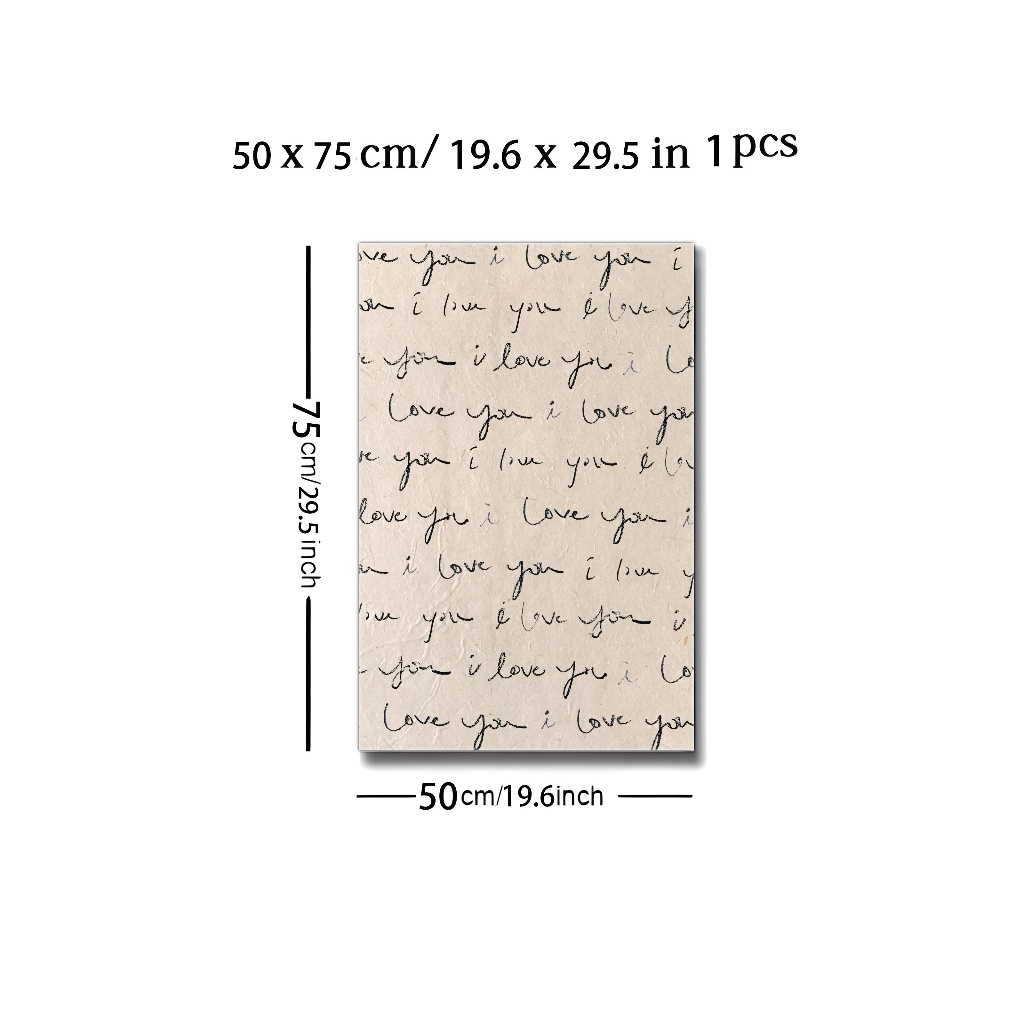 50 x 75 cm/ 19.6 x 29.5 in 1 pcs
ove you i love you i
ou i love you i love y
e you i love you i lo
love you i love you
ve you i love you i lov
love you i love you i
u i love you i love y
love you i love you i
e you i love you i lo
love you i love you
75cm/29.5inch
50cm/19.6inch